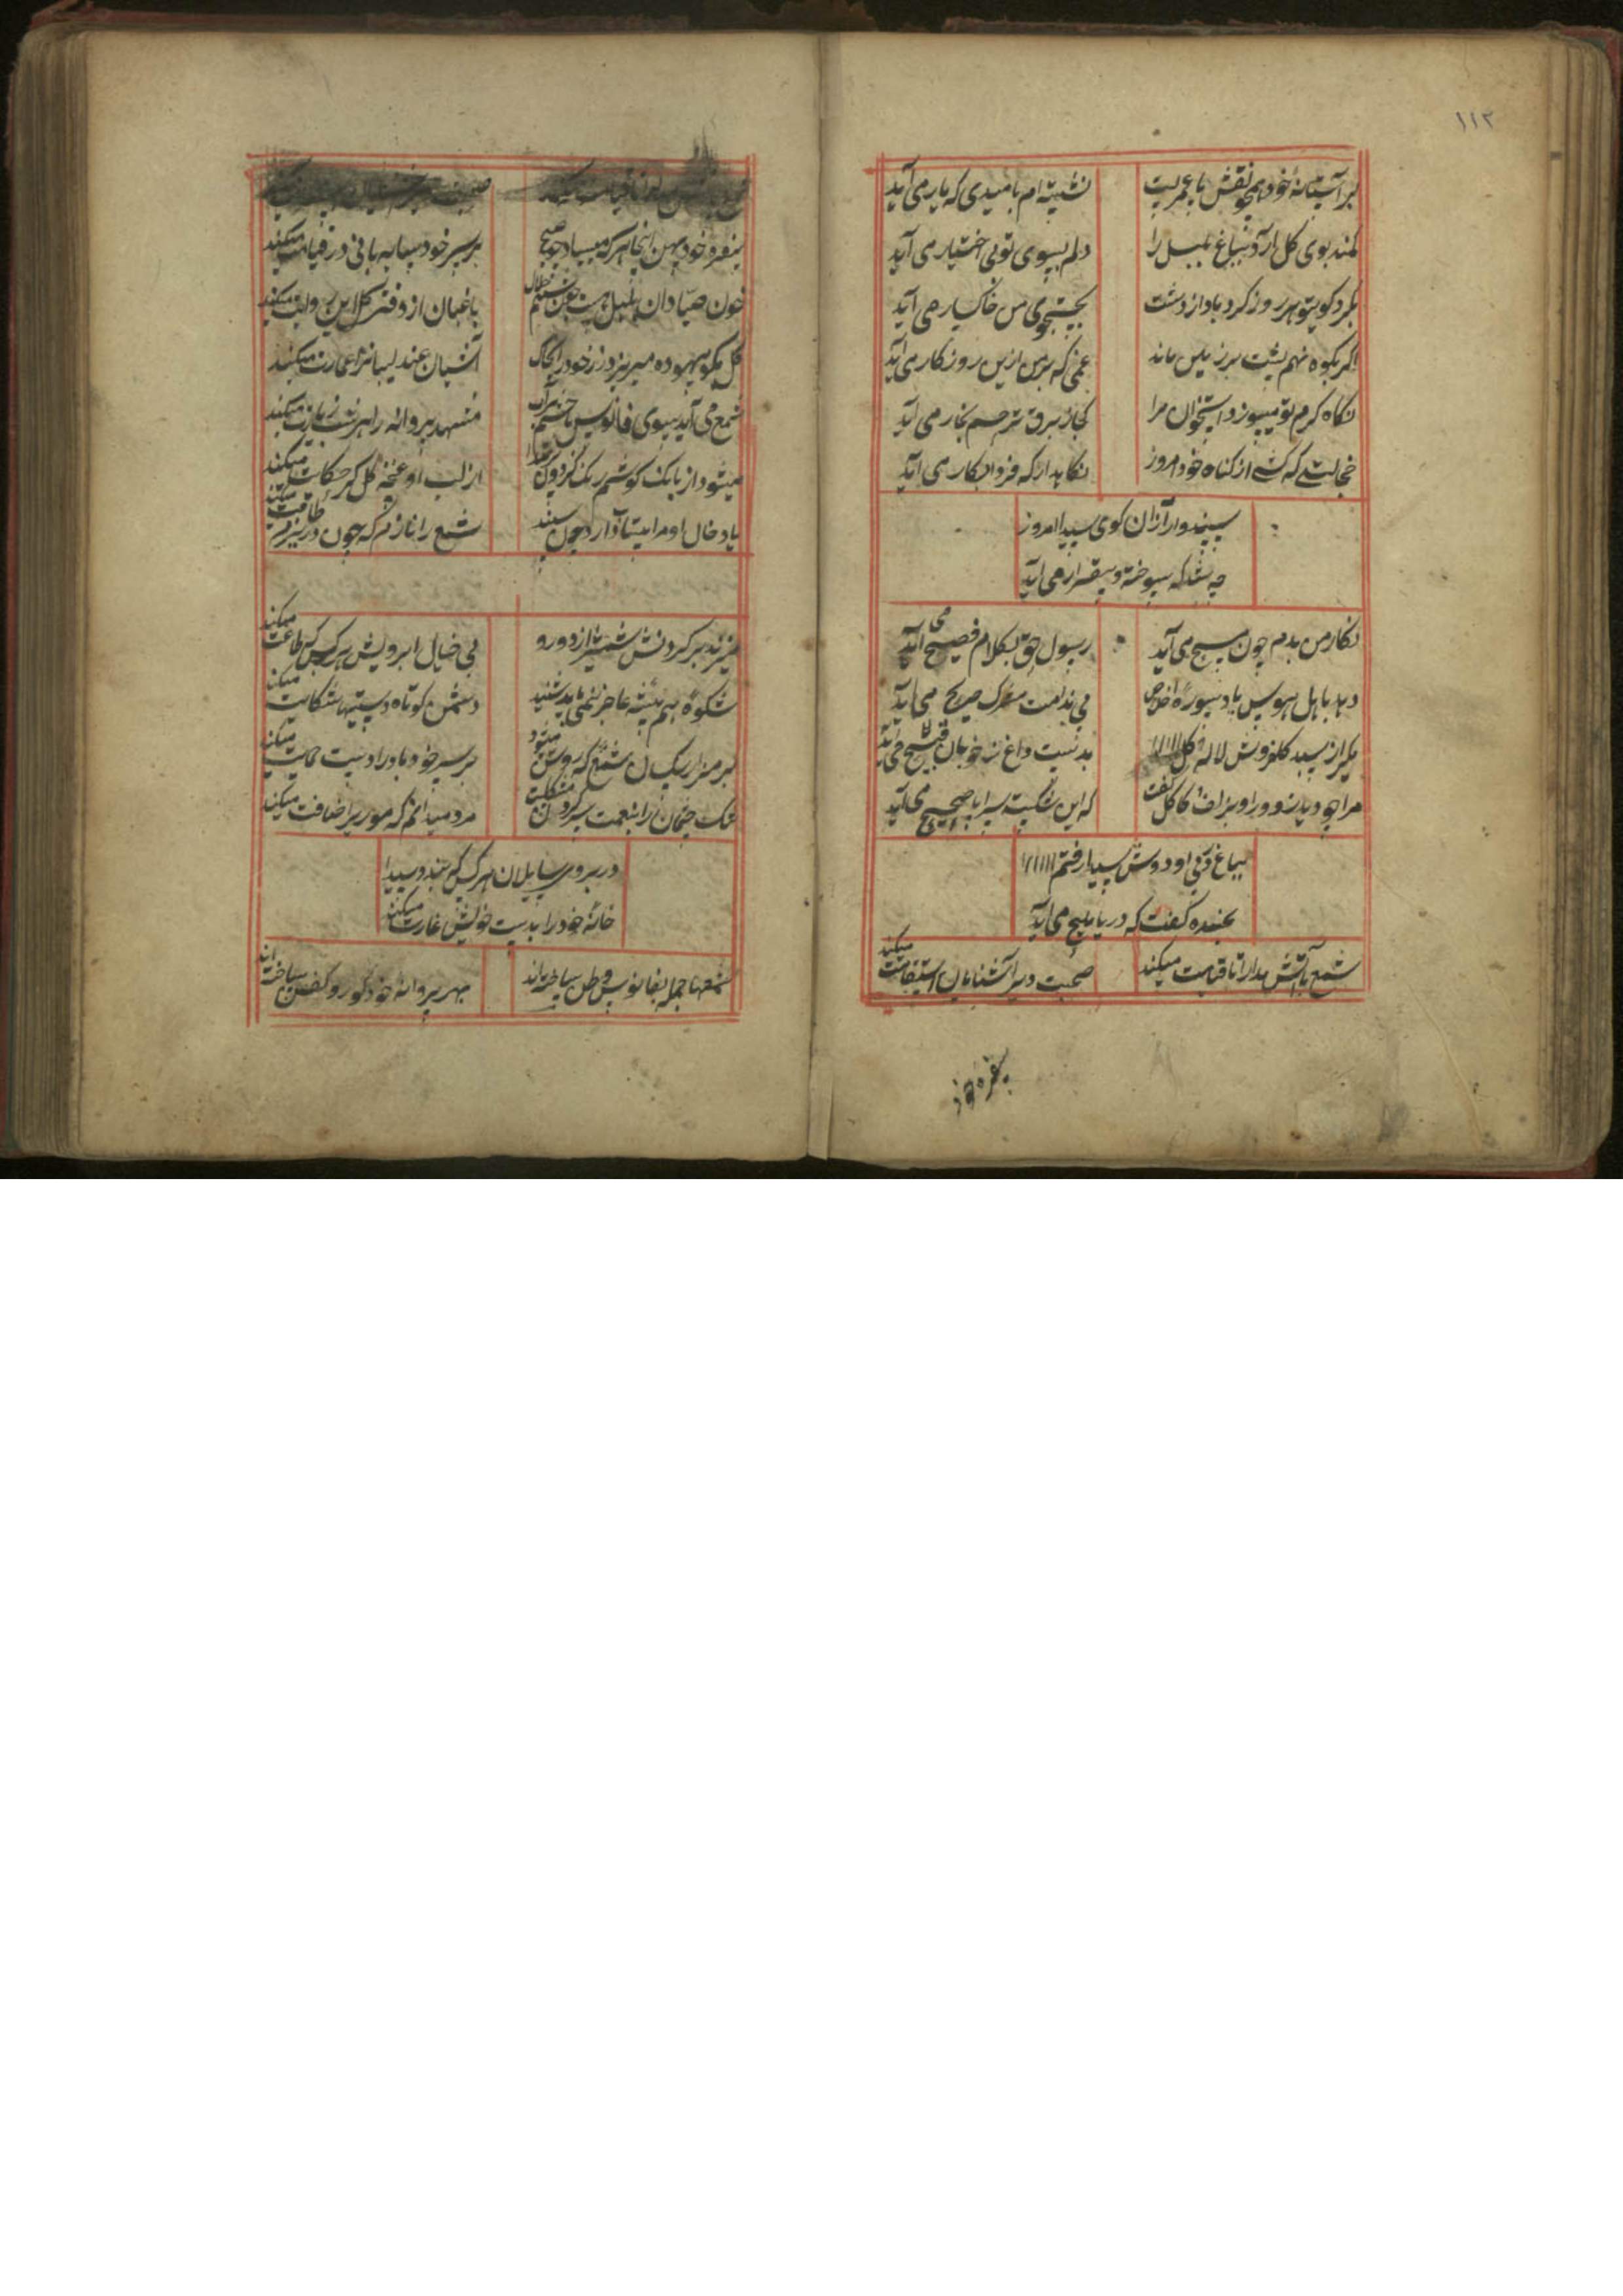 ۱۱۲
بر آستانهٔ خود همچو نقش پا عمریست
نشسته ام بامیدی که یار می آید
کمند بوی کل آرد بباغ بلبل را
دلم بسوی تو بی اختیار می آید
بکرد کویتو هر روز کردباد از دشت
بجستجوی من خاکسار می آید
اکر بکوه نهم پشت بر زمین ماند
غمی که بر من ازین روزکار می آید
نکاه کرم تو میسوزد استخوان مرا
کجا ز برق ترحم بخار می آید
خجالتی که کشی از کناه خود امروز
نکاهدار که فردا بکار می آید
سپندوار از آن کوی سیدا امروز
چه شد که سوخته و بیقرار می آید
نکار من بدم چون مسیح می آید
رسول حق بکلام فصیح می آید
دهد باهل هوس یاد سورهٔ اخلاص
بی ندامت مرک صریح می آید
سبد کلفروش لاله و کل
بدست داغ ز خوبان قبیح می آید
مرا چو دید زلف کاکل کفت
که این شکست سراپا صحیح می آید
بباغ رفتی او دوش سیدا رفتم
بخنده کفت که دریا ملیح می آید
شمع با آتش مدارا تا قیامت میکند
صحبت دیر آشنایان استقامت میکند
سفره خود پهن اینجا هر که میسازد چو صبح
بر سر خود سایه بانی در قیامت میکند
خون صیادان بلبل هست چون شبنم حلال
باغبان از دفتر کل این روایت میکند
کل بکو بیهوده میریزد زر خود را بخاک
آشیان عندلیبانرا عمارت میکند
شمع می آید بسوی فانوس با چشم پرآب
مشهد پروانه را هر شب زیارت میکند
میشود از بانک کوشم رنک
از لب او غنچهٔ کل کر حکایت میکند
یاد خال او مرا بیتاب دارد چون سپند
شمع را نازم که چون در زیر طاقت میکند
میزند بر کردنش شمشیر از دو رو
بی خیال ابرویش هر کس که طاعت میکند
شکوهٔ هم پیشه عاجز نمی باید شنید
دشمن کوتاه دستیها شکایت میکند
بر مزار بیکسان شمع که روشن میشود
بر سر خود باد را دست حمایت میکند
تنک چشمان را بنعمت سیر کردن مشکلست
مرد میدانم که موریرا ضیافت میکند
در بروی سایلان هر کس که بندد سیدا
خانهٔ خود را بدست خویش غارت میکند
شمعها جمله بفانوس وطن ساخته اند
بهر پروانه خود کور و کفن ساخته اند